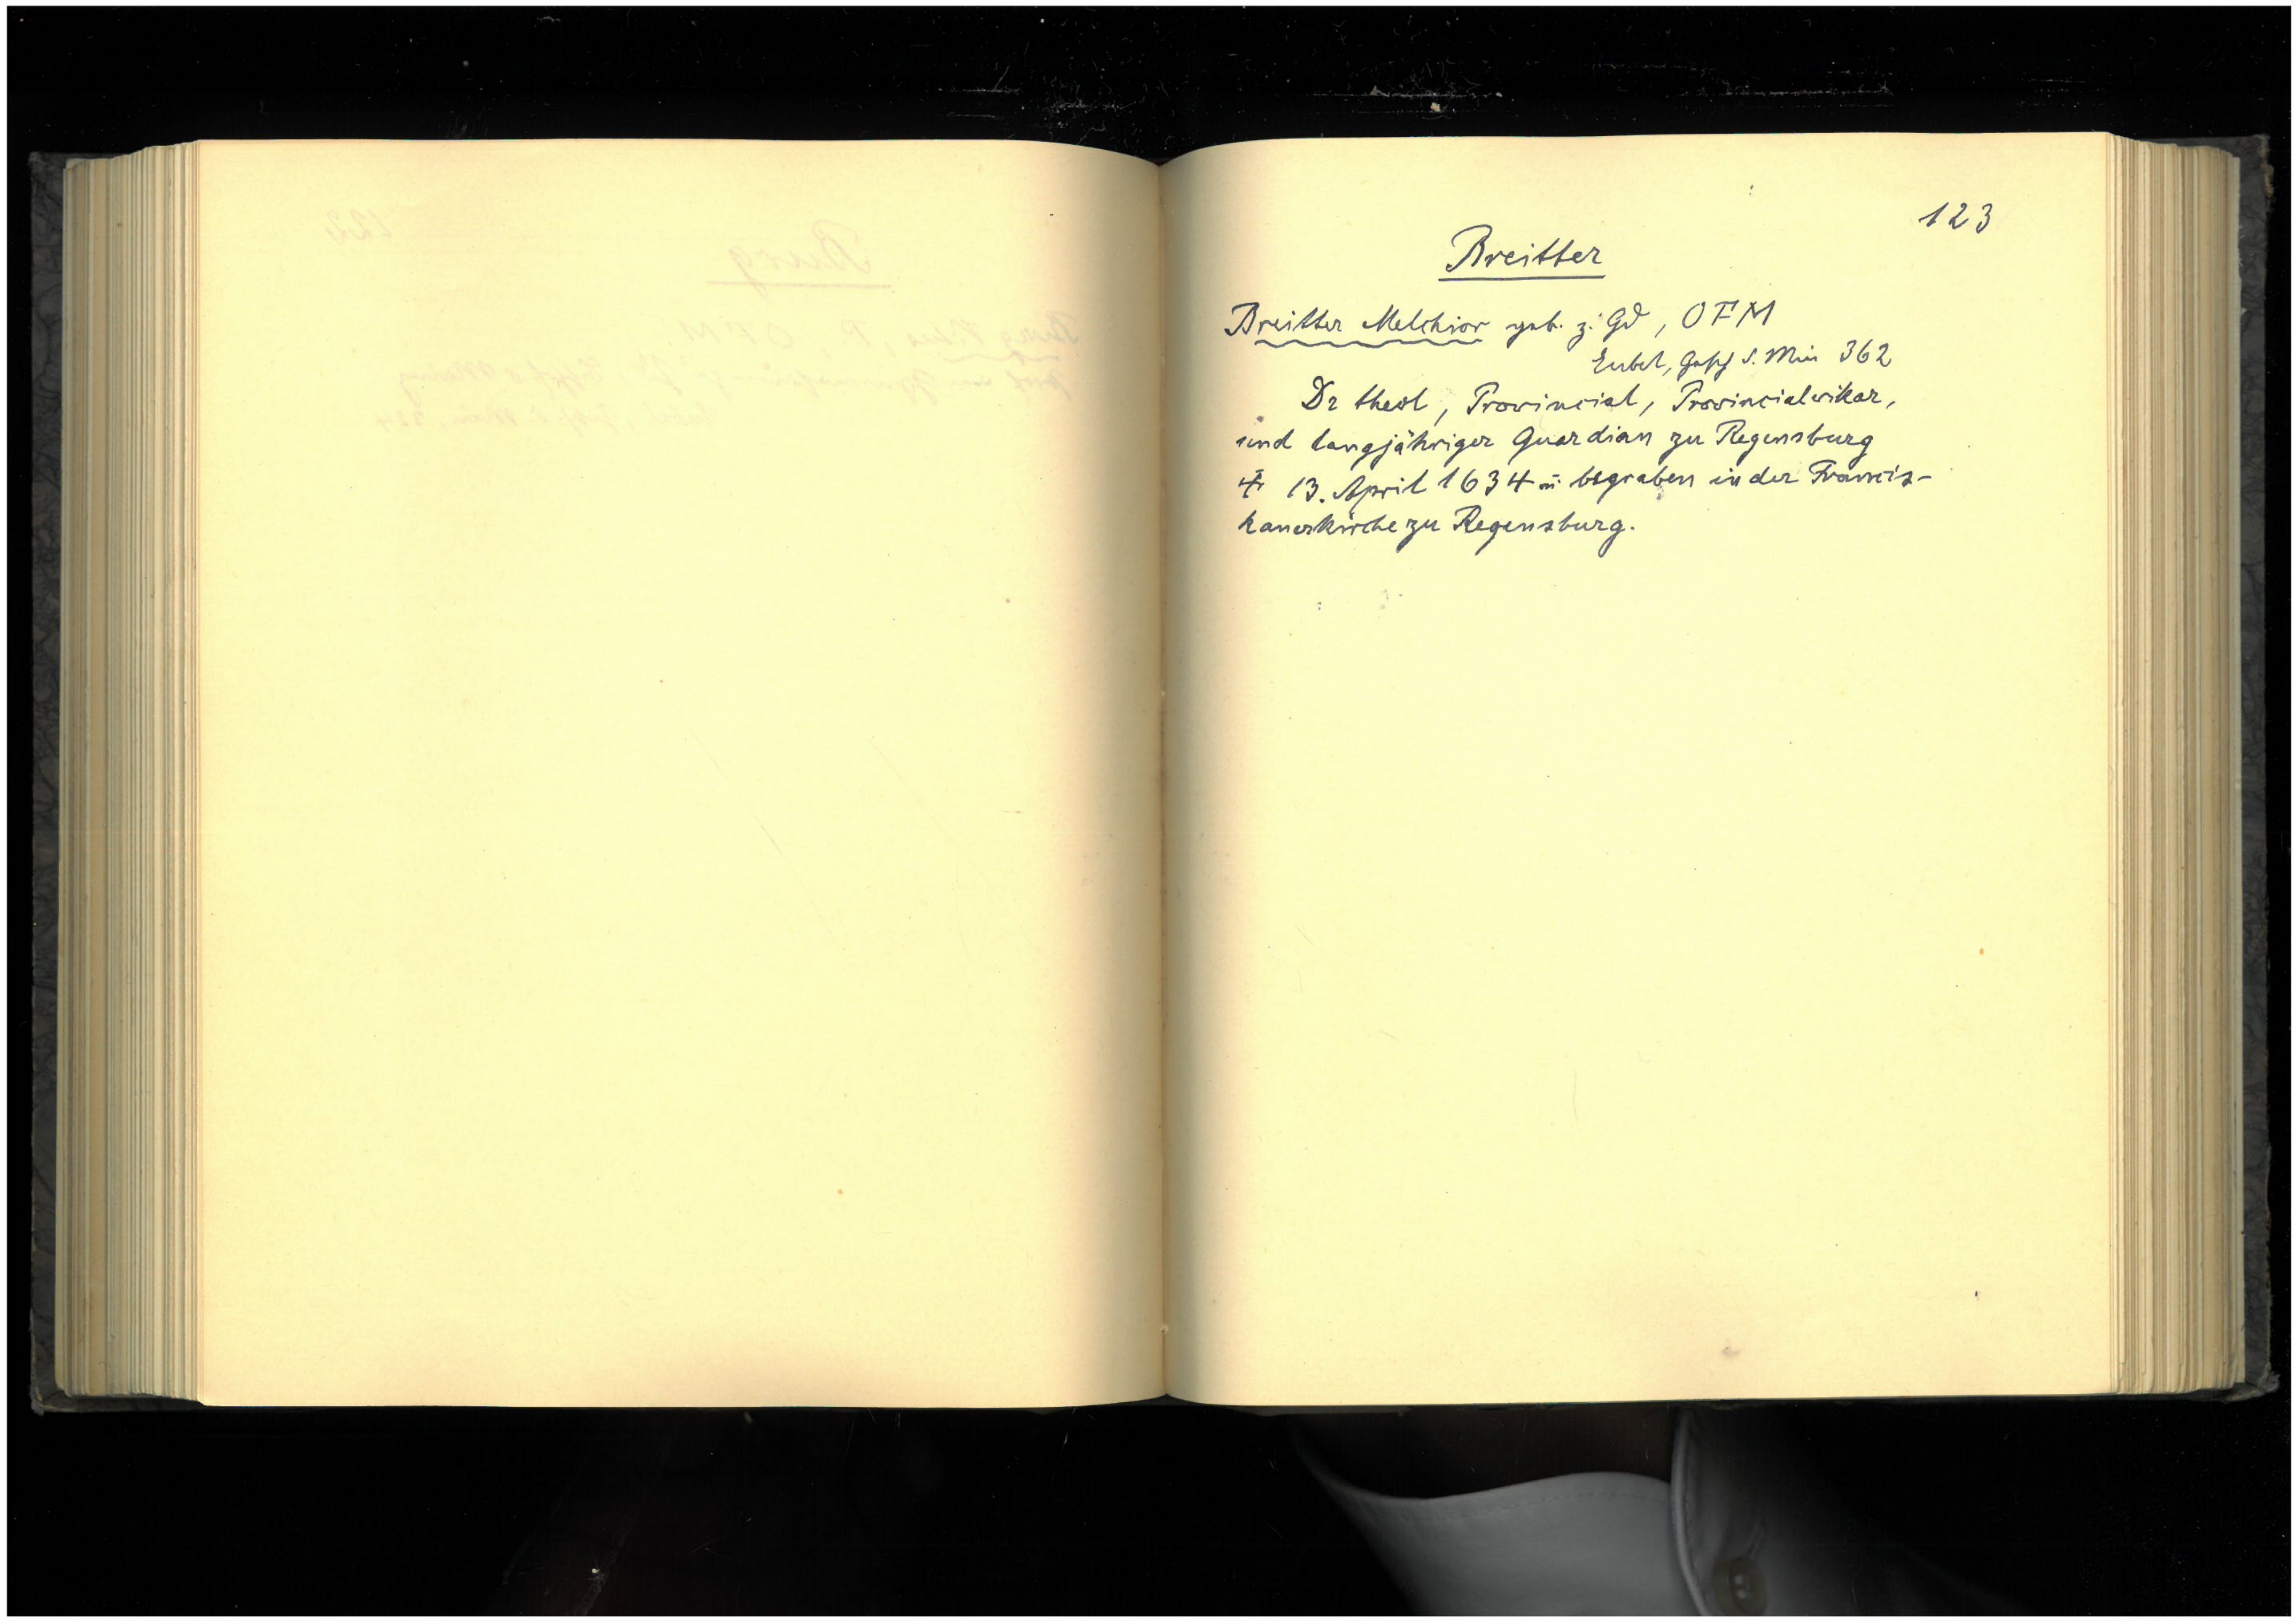 123
Breitter
Breitter Melchior geb. z. Gd, OFM
Eubel, Gesch d. Min 362
Dr theol, Provincial, Provincialvikar,
und langjähriger Guardian zu Regensburg
† 13. April 1634 u. begraben in der Francis-
kanerkirche zu Regensburg.